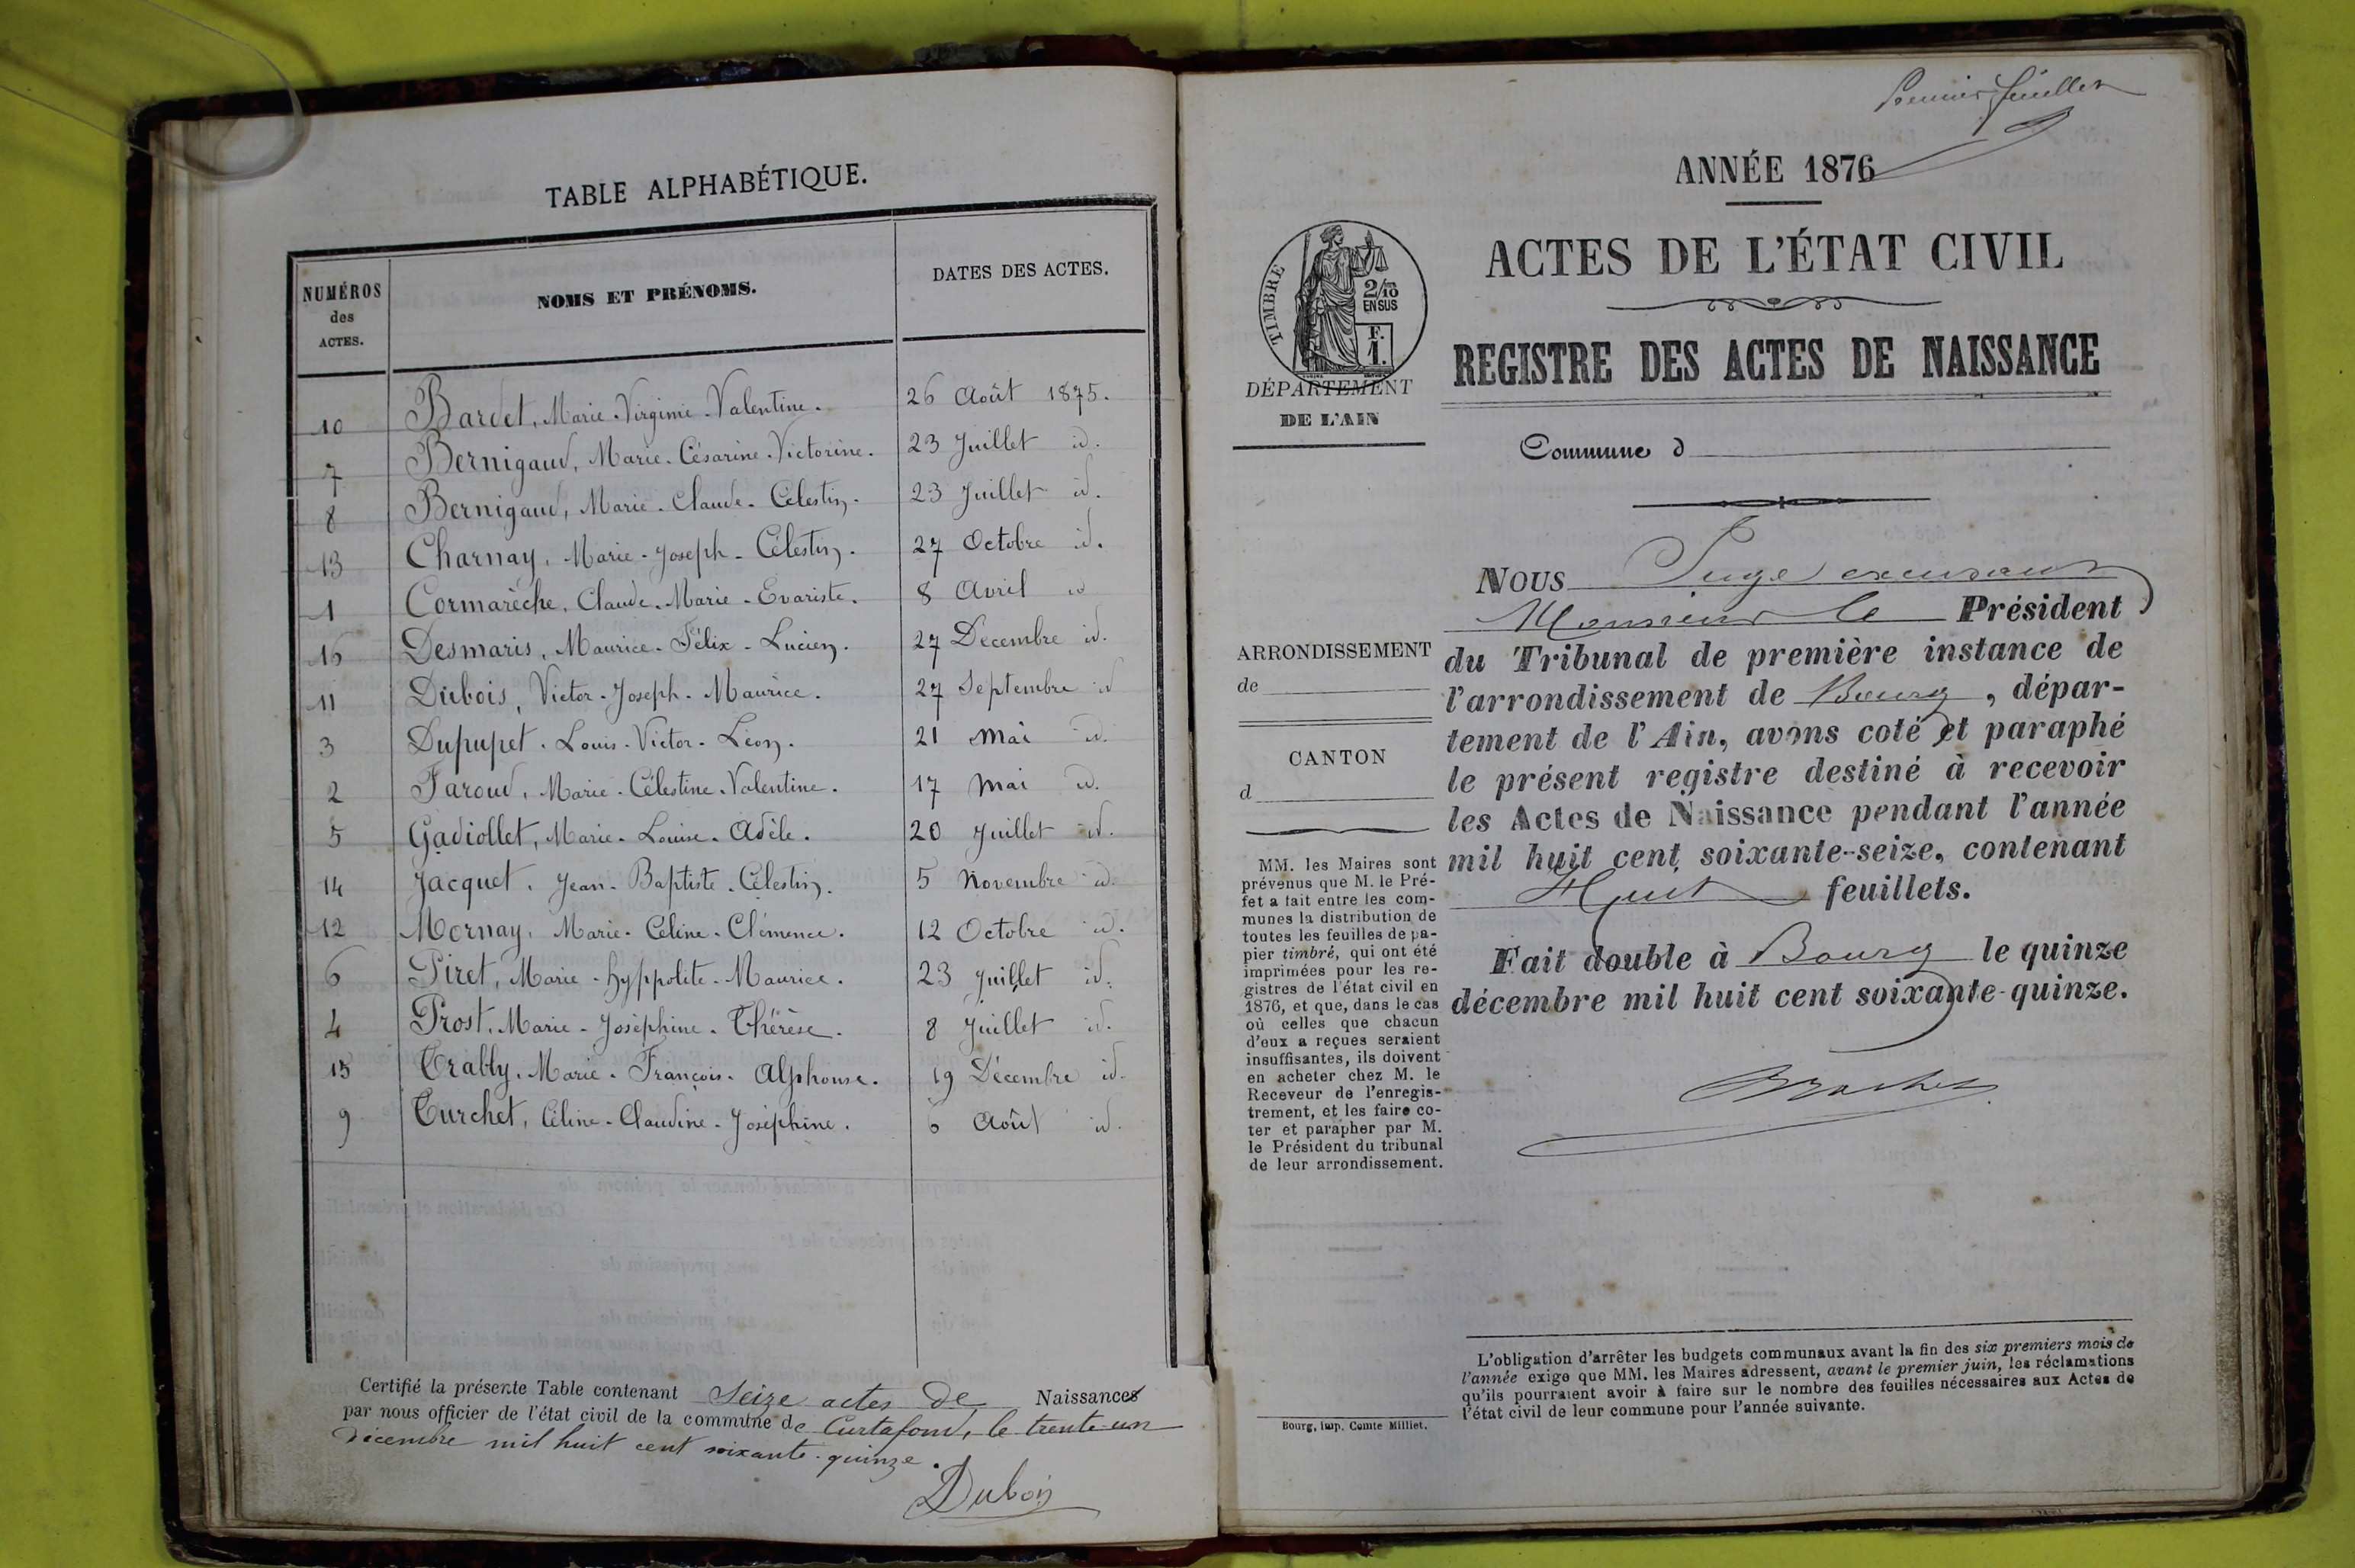 TABLE ALPHABÉTIQUE.
NUMÉROS des ACTES. NOMS ET PRÉNOMS. DATES DES ACTES.
10 Bardet, Marie-Virginie-Valentine. 26 Août 1875.
7 Bernigaud, Marie-Césarine-Victorine. 23 Juillet id.
8 Bernigaud, Marie-Claude-Célestin. 23 Juillet id.
13 Charnay, Marie-Joseph-Célestin. 27 Octobre id.
1 Cormarèche, Claude-Marie-Evariste. 8 Avril id
16 Desmaris, Maurice-Félix-Lucien. 27 Décembre id.
11 Dubois, Victor-Joseph-Maurice. 27 Septembre id
3 Dupupet. Louis-Victor-Léon. 21 Mai id.
2 Faroud, Marie-Célestine-Valentine. 17 Mai id.
5 Gadiollet, Marie-Louise-Adèle. 20 Juillet id.
14 Jacquet, Jean-Baptiste-Célestin. 5 Novembre id.
12 Mornay, Marie-Céline-Clémence. 12 Octobre id.
6 Piret, Marie-Hyppolite-Maurice. 23 Juillet id.
4 Prost, Marie-Joséphine-Thérèse. 8 Juillet id.
15 Trably, Marie-François-Alphonse. 19 Décembre id.
9 Turchet, Céline-Claudine-Joséphine. 6 Août id.
Certifié la présente Table contenant Seize actes de Naissances
par nous officier de l'état civil de la commune de Curtafond, le trente-un
décembre mil huit cent soixante-quinze.
Dubois
Premier feuillet
ANNÉE 1876
ACTES DE L'ÉTAT CIVIL
REGISTRE DES ACTES DE NAISSANCE
TIMBRE
2/10
EN SUS
F.
1.
DÉPARTEMENT
DE L'AIN
Commune d
ARRONDISSEMENT
de
CANTON
d
MM. les Maires sont
prévenus que M. le Pré-
fet a fait entre les com-
munes la distribution de
toutes les feuilles de pa-
pier timbré, qui ont été
imprimées pour les re-
gistres de l'état civil en
1876, et que, dans le cas
où celles que chacun
d'eux a reçues seraient
insuffisantes, ils doivent
en acheter chez M. le
Receveur de l'enregis-
trement, et les faire co-
ter et parapher par M.
le Président du tribunal
de leur arrondissement.
NOUS Juge
Monsieur le Président
du Tribunal de première instance de
l'arrondissement de Bourg, dépar-
tement de l'Ain, avons coté et paraphé
le présent registre destiné à recevoir
les Actes de Naissance pendant l'année
mil huit cent soixante-seize, contenant
Huit feuillets.
Fait double à Bourg le quinze
décembre mil huit cent soixante-quinze.
L'obligation d'arrêter les budgets communaux avant la fin des six premiers mois de
l'année exige que MM. les Maires adressent, avant le premier juin, les réclamations
qu'ils pourraient avoir à faire sur le nombre des feuilles nécessaires aux Actes de
l'état civil de leur commune pour l'année suivante.
Bourg, imp. Comte Milliet.